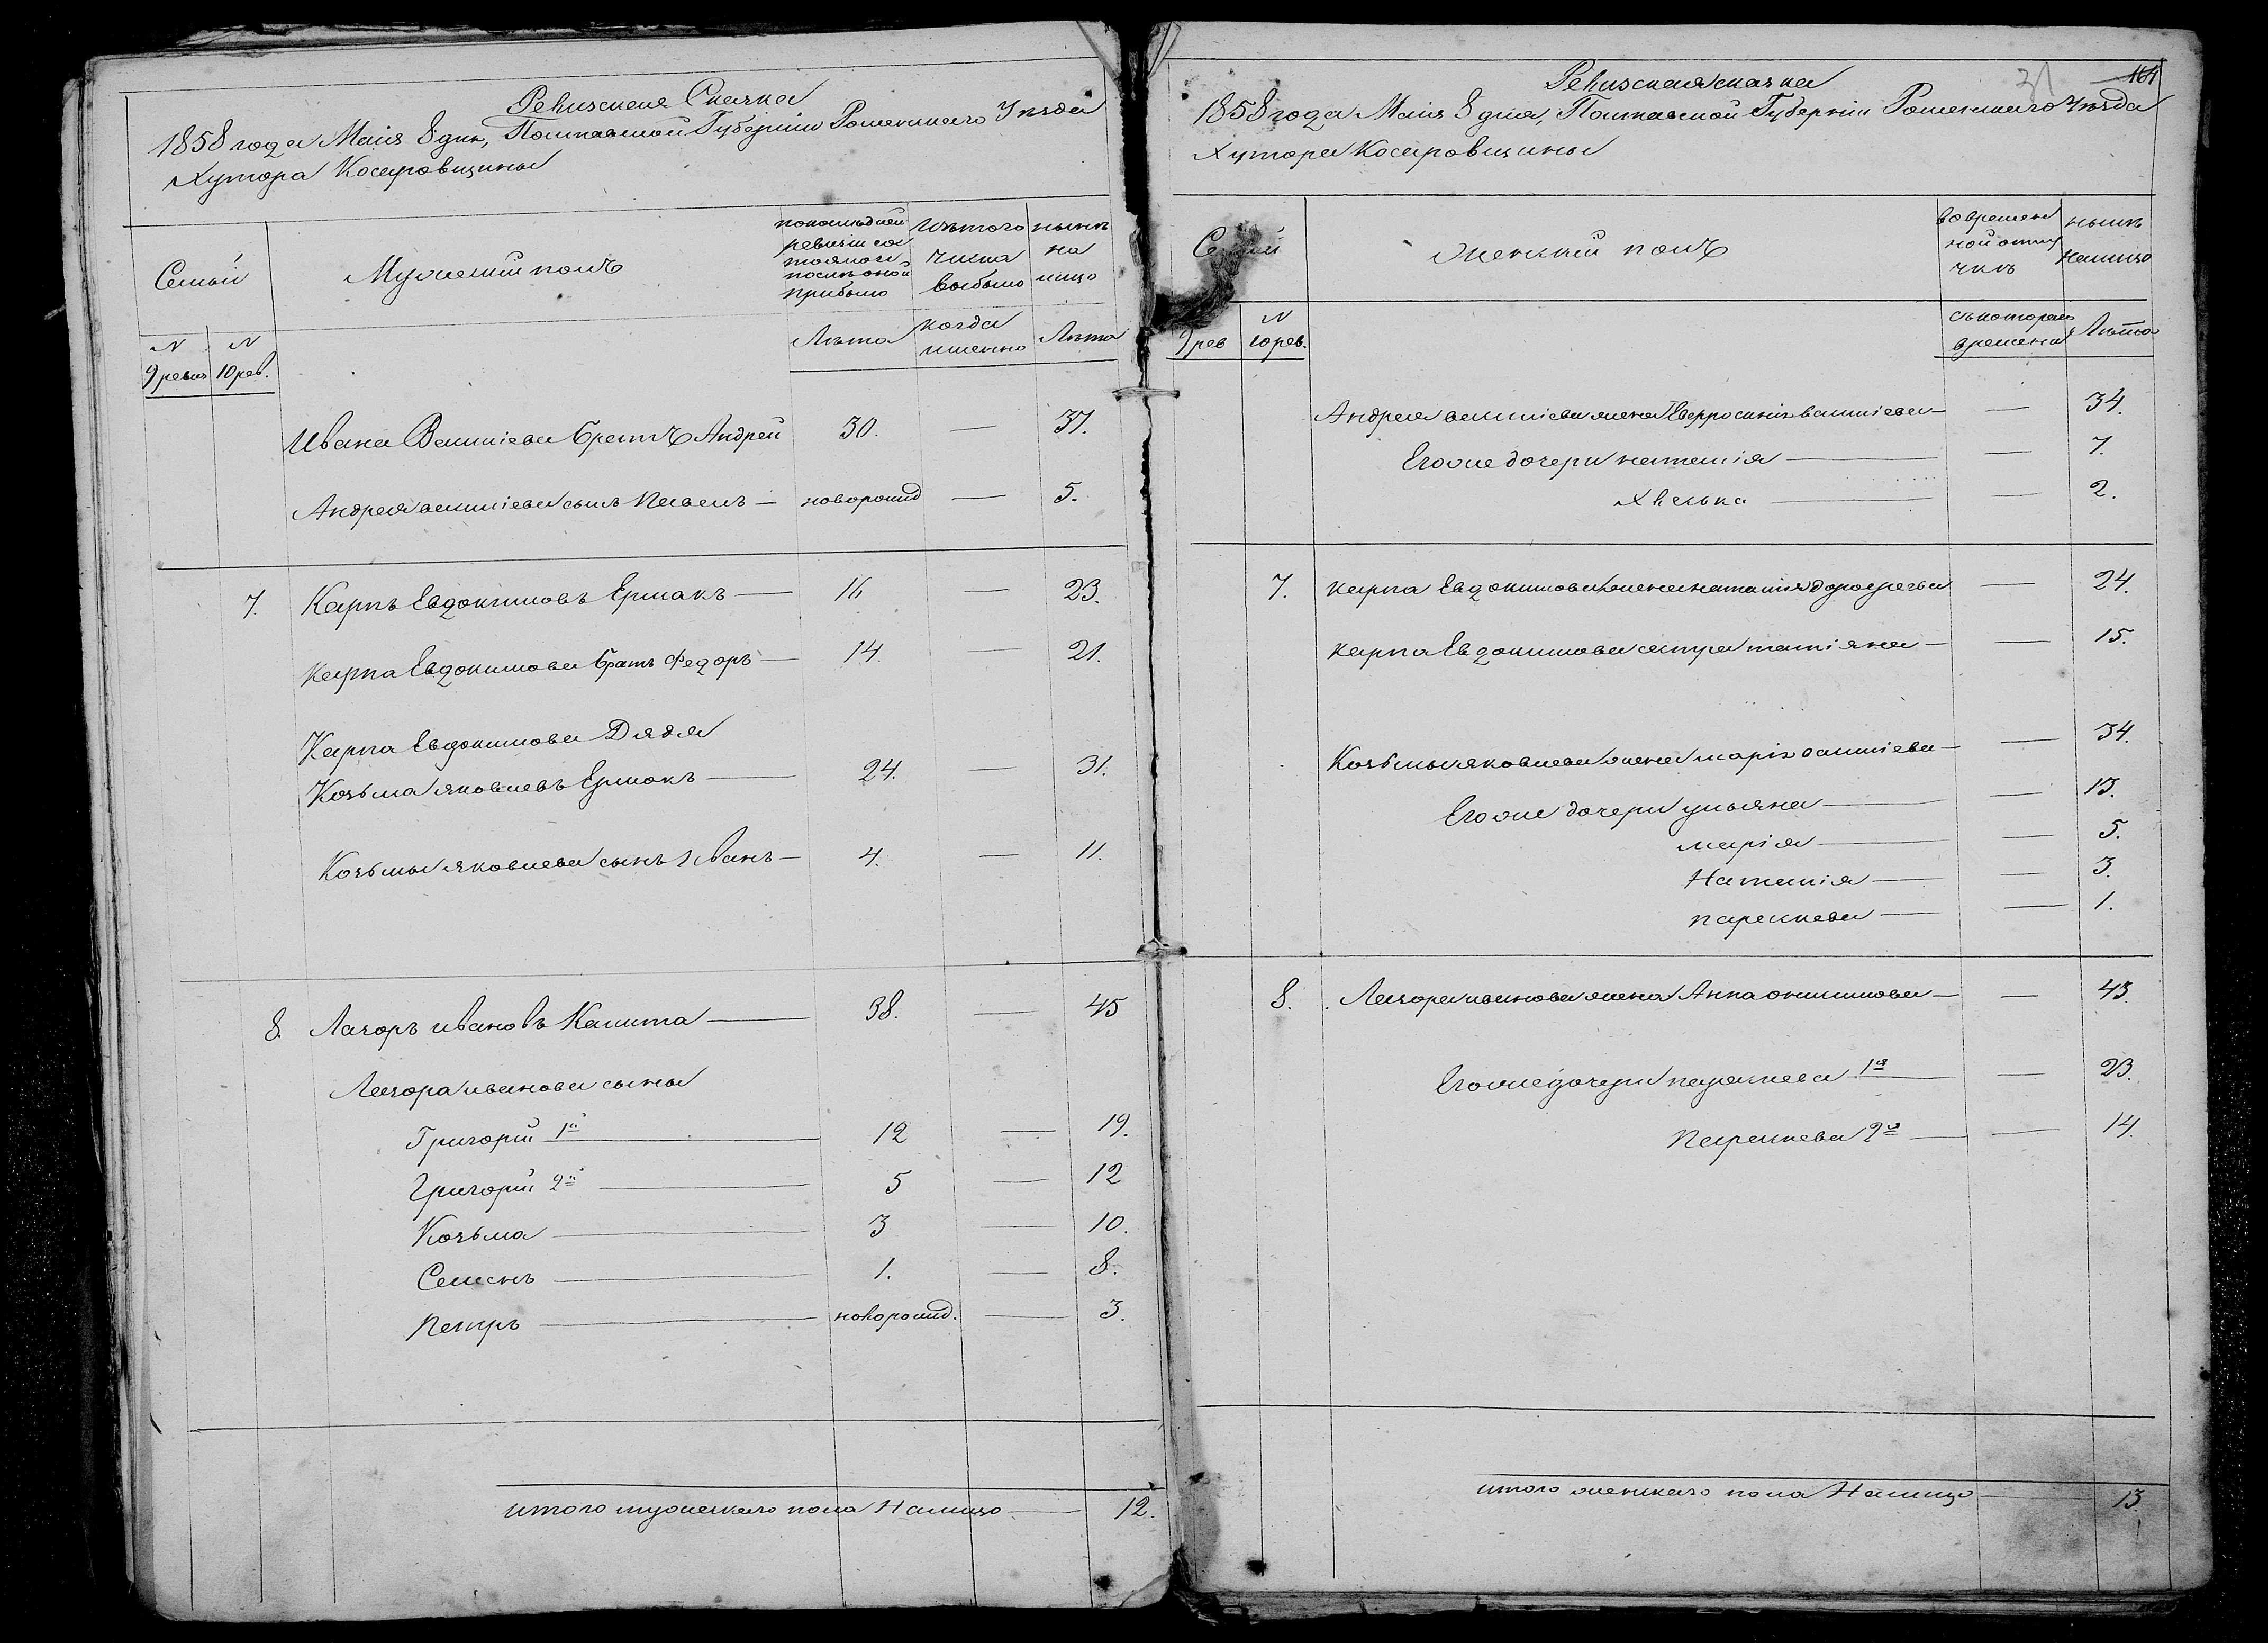 Ревизская Сказка
1858 года Маия 8 дня, Полтавской Губернии Роменскаго Уезда
Хутора Косаровщины
Семьи
Мужеский полъ
по последней
ревизии со
стояло и
после оной
прибыло
Изъ того
числа
выбыло
ныне
на
лицо
N
9 ревиз
N
10 рев.
Лета
когда
именно
Лета
Ивана Василіева братъ Андрей 30. — 37.
Андрея василіева сынъ Павелъ — новорожд — 5.
7. Карпъ Евдокимовъ Ермакъ — 16 — 23.
Карпа Евдокимова братъ Федоръ — 14. — 21.
Карпа Евдокимова Дядя
Козьма яковлевъ Ермакъ — 24. — 31.
Козьмы яковлева сынъ Иванъ — 4. — 11.
8. Лазоръ ивановъ Калита — 38. — 45
Лазора иванова сыны
Григорій 1й — 12 — 19.
Григорій 2й — 5 — 12
Козьма — 3 — 10.
Семенъ — 1. — 8.
Петръ — новорожд. — 3.
итого мужескаго пола Налицо — 12.
31 164
Ревизская сказка
1858 года Маия 8 дня, Полтавской Губерніи Роменскаго Уѣзда
Хутора Косаровщины
Женский полъ
во времен
ной отлу
чкѣ
нынѣ
налицо
9 рев
N
10 рев.
съ котораго
времени
Лѣта
Андрея василіева жена Евфросинія василіева — — 34.
Его же дочери наталія — — 7.
Хвеська — — 2.
7. Карпа Евдокимова жена наталия дорофеева — 24.
Карпа Евдокимова сестра татіяна — — 15.
Козьмы яковлева жена марія василіева — — 34.
Его же дочери ульяна — — 13.
марія — — 5.
Наталія — — 3.
параскева — — 1.
8. Лазора иванова жена Анна онисимова — — 43.
Его же дочери параскева 1я — — 23.
Параскева 2я — — 14.
итого женскаго пола Налицо — 13